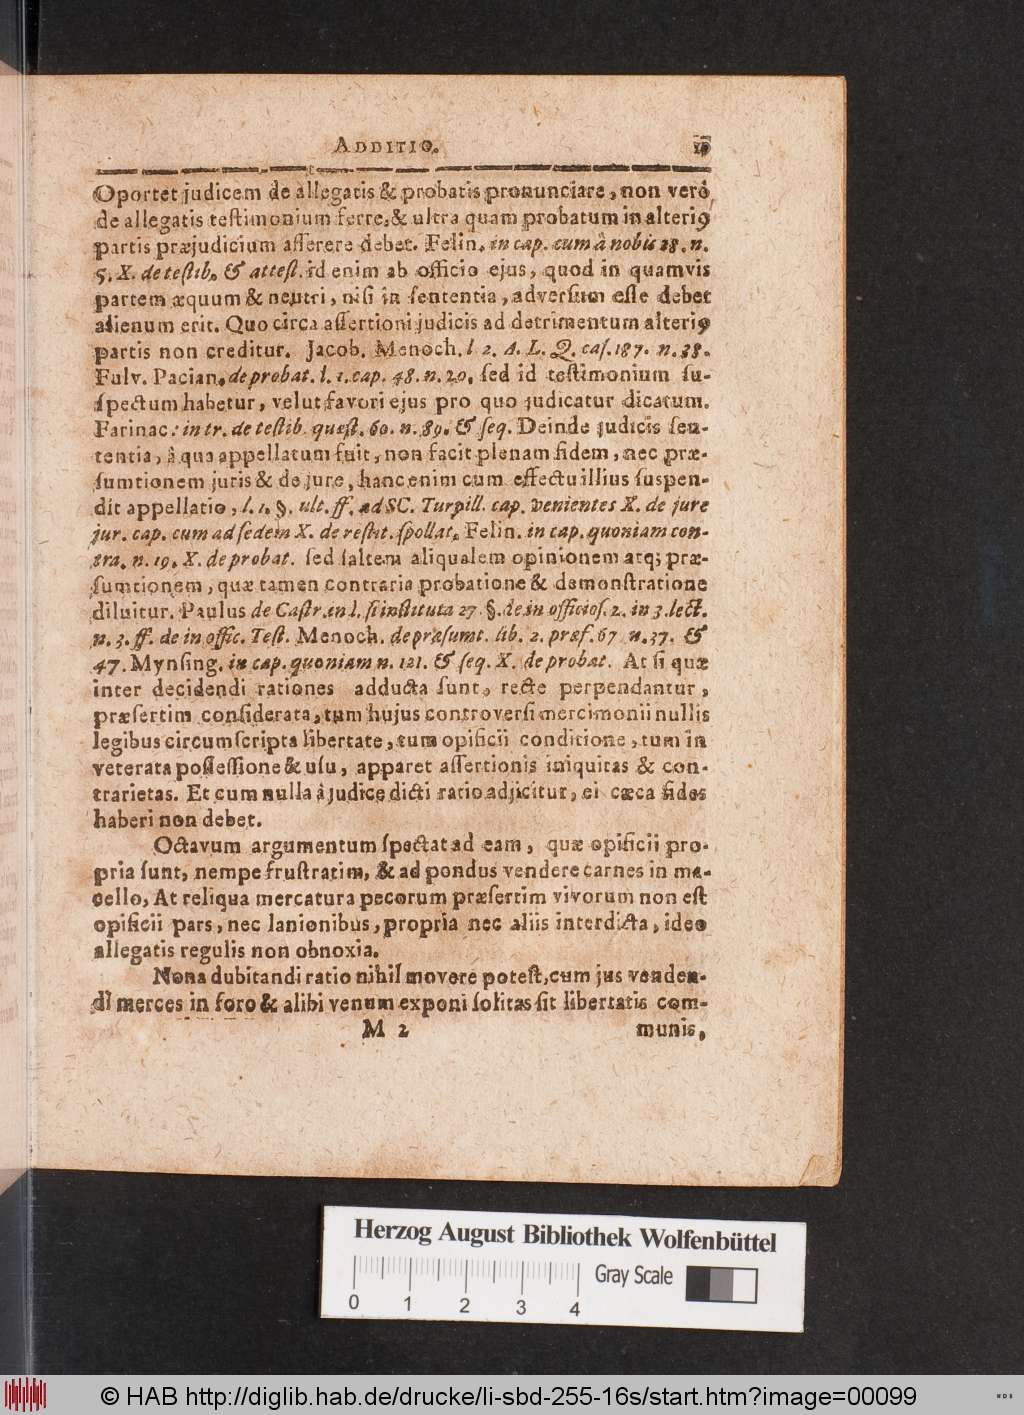 ADDITIO.
Oportet judicem de allegatis & probatis pronunciare, non verò
de allegatis teſtimonium ferre, & ultra quam probatum in alteriꝰ
partis præjudicium aſſerere debet. Felin. in cap. cum â nobis 28. n.
5. X. de teſtib. & atteſt. id enim ab officio ejus, quod in quamvis
partem æquum & neutri, niſi in ſententia, adverſum eſſe debet
alienum erit. Quo circa aſſertioni judicis ad detrimentum alteriꝰ
partis non creditur. Jacob. Menoch. l 2. A. L. Q. caſ. 187. n. 38.
Fulv. Pacian. de probat. l. 1. cap. 48. n. 20. ſed id teſtimonium ſu-
ſpectum habetur, velut favori ejus pro quo judicatur dicatum.
Farinac: in tr. de teſtib. quæſt. 60. n. 89. & ſeq. Deinde judicis ſen-
tentia, à qua appellatum fuit, non facit plenam fidem, nec præ-
ſumtionem juris & de jure, hanc enim cum effectu illius ſuspen-
dit appellatio, l. 1. §. ult. ff. ad SC. Turpill. cap. venientes X. de jure
jur. cap. cum ad ſedem X. de reſtit. ſpoliat. Felin. in cap. quoniam con-
tra. n. 19. X. de probat. ſed ſaltem aliqualem opinionem atq; præ-
ſumtionem, quæ tamen contraria probatione & demonſtratione
diluitur. Paulus de Caſtr. in l. ſi inſtituta 27 §. de in officioſ. 2. in 3. lect.
n. 3. ff. de in offic. Teſt. Menoch. de præſumt. lib. 2. præſ. 67 n. 37. &
47. Mynſing. in cap. quoniam n. 121. & ſeq. X. de probat. At ſi quæ
inter decidendi rationes adducta ſunt, recte perpendantur,
præſertim conſiderata, tum hujus controverſi mercimonii nullis
legibus circumſcripta libertate, tum opificii conditione, tum in
veterata poſſeſſione & uſu, apparet aſſertionis iniquitas & con-
trarietas. Et cum nulla à judice dicti ratio adjicitur, ei cæca fides
haberi non debet.
Octavum argumentum ſpectat ad eam, quæ opificii pro-
pria ſunt, nempe fruſtratim, & ad pondus vendere carnes in ma-
cello, At reliqua mercatura pecorum præſertim vivorum non eſt
opificii pars, nec lanionibus, propria nec aliis interdicta, ideo
allegatis regulis non obnoxia.
Nona dubitandi ratio nihil movere poteſt, cum jus venden-
di merces in foro & alibi venum exponi ſolitas ſit libertatis com-
M 2 munis,
Herzog August Bibliothek Wolfenbüttel
0 1 2 3 4 Gray Scale
© HAB http://diglib.hab.de/drucke/li-sbd-255-16s/start.htm?image=00099
WDB